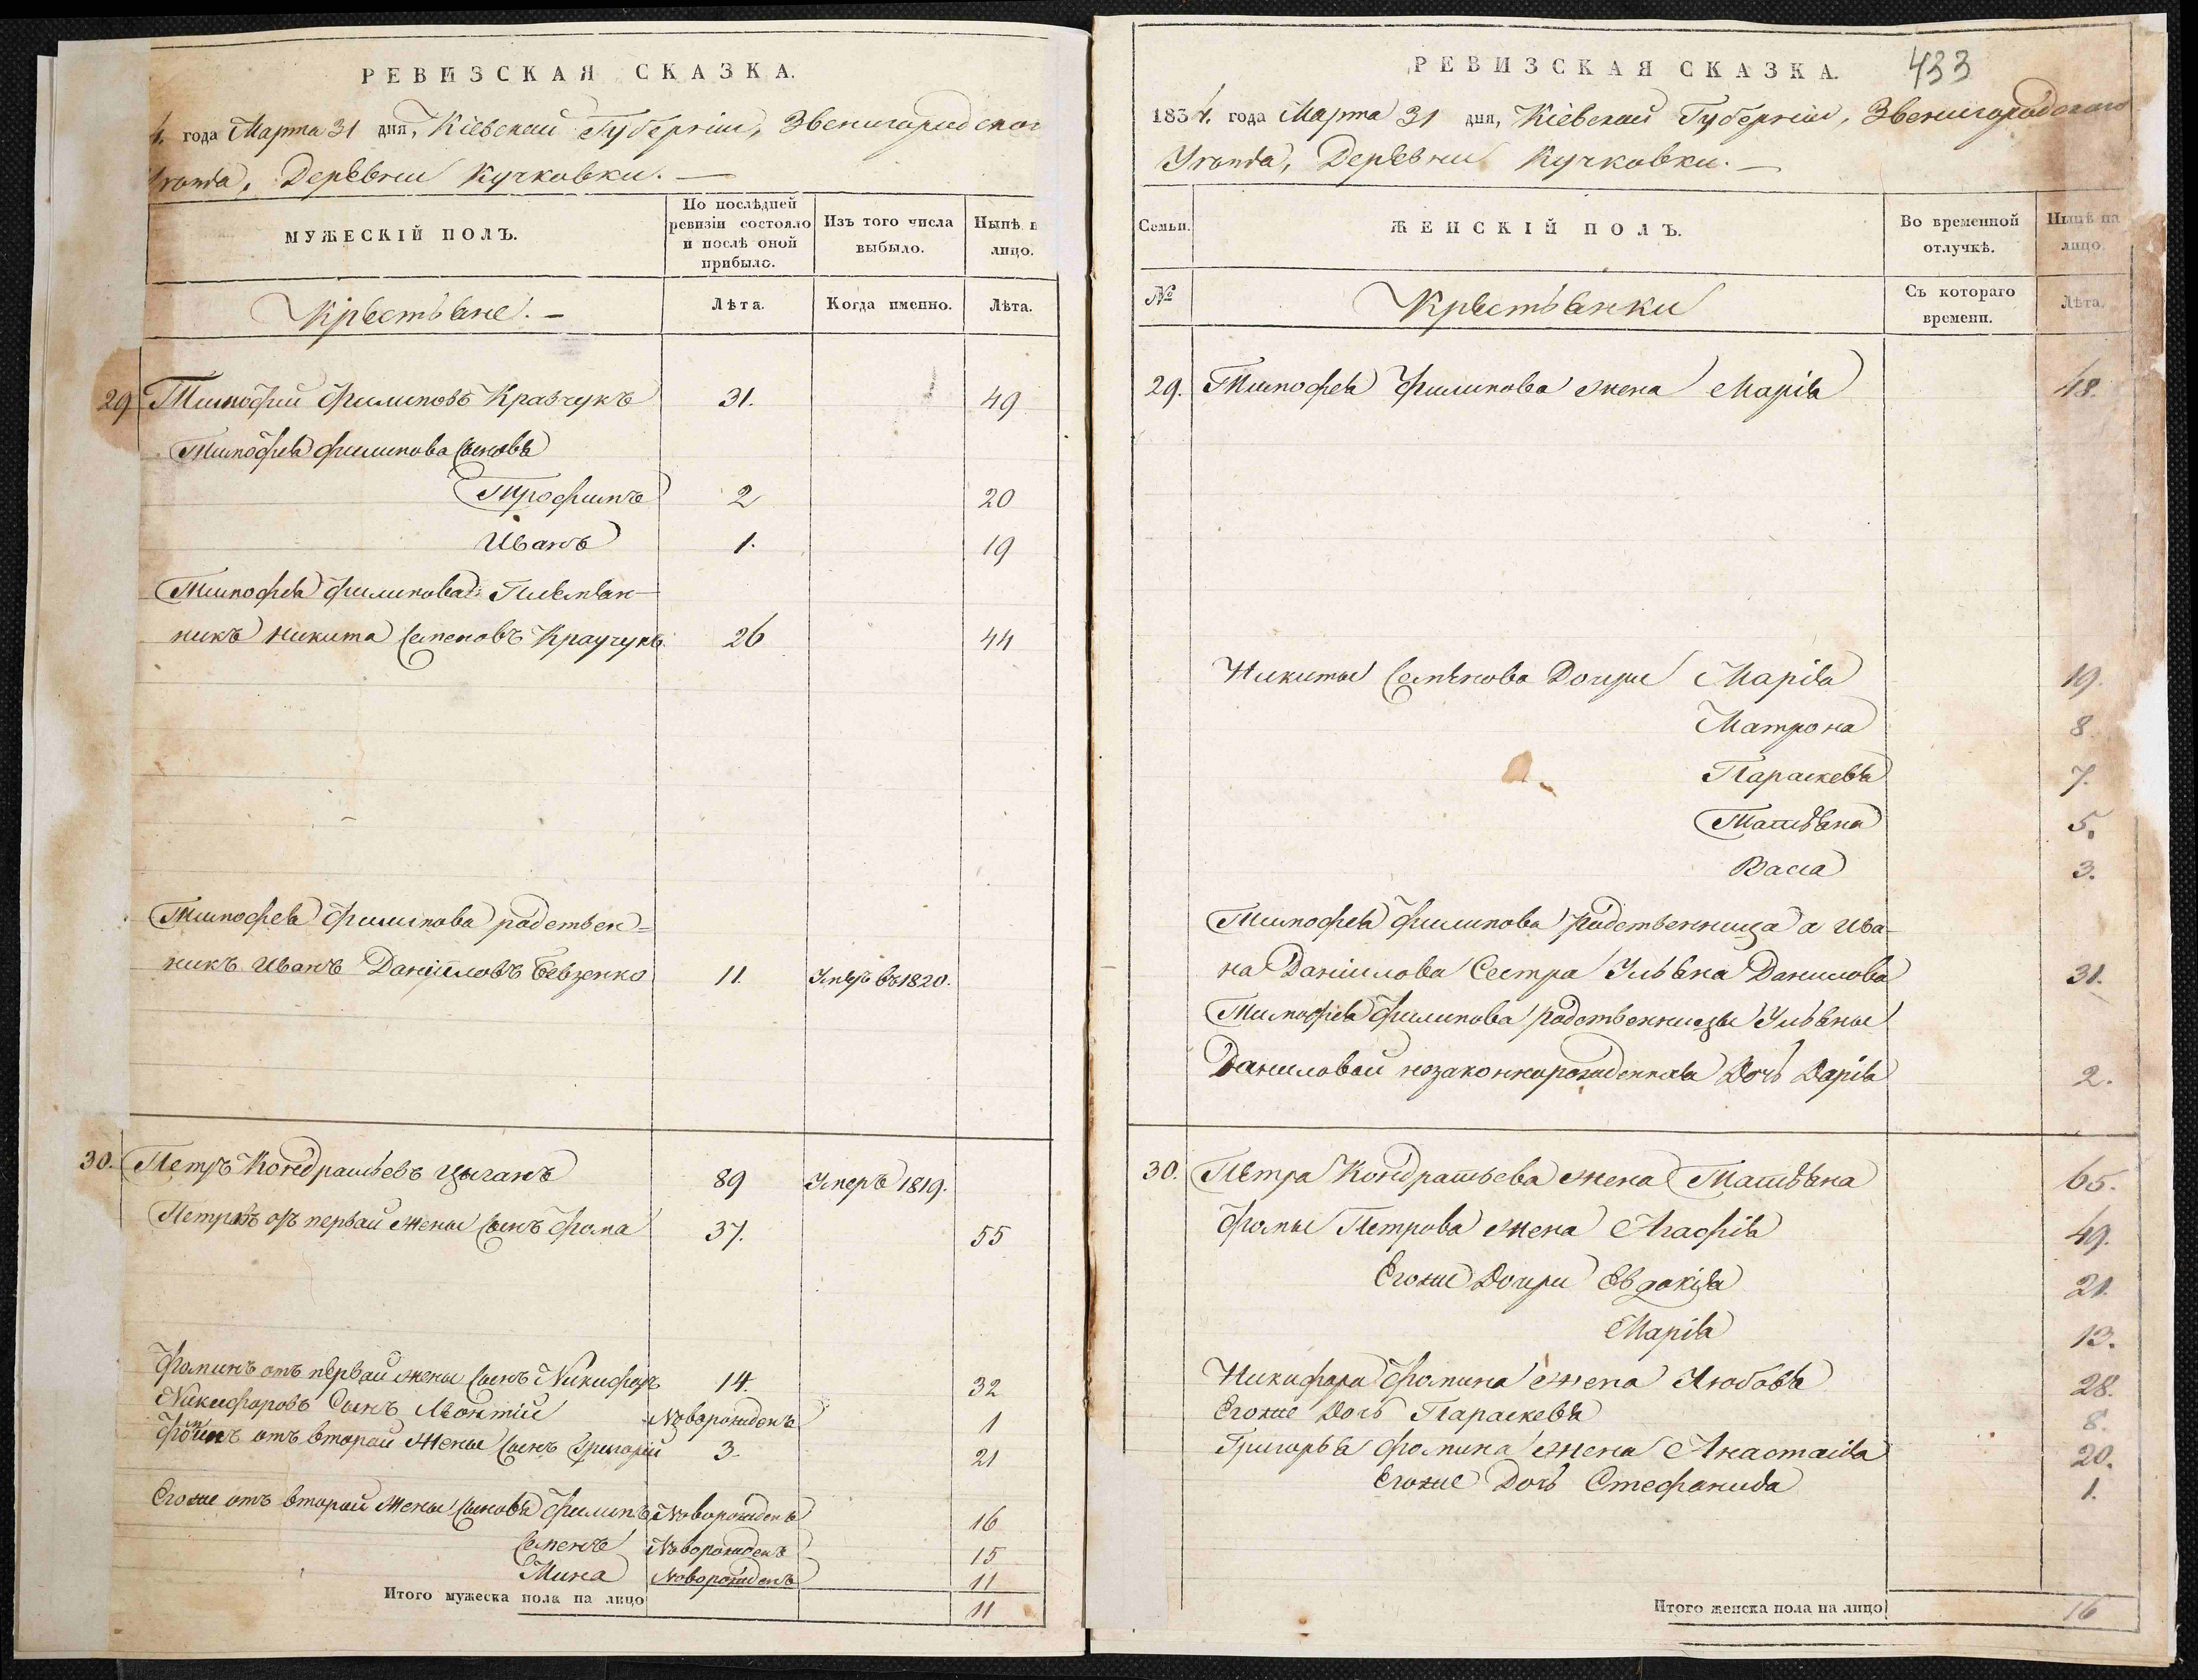 РЕВИЗСКАЯ СКАЗКА.
4. года Марта 31 дня, Кіевской Губерніи, Звенигородског
Уезда, Деревни Кучковки. —
МУЖЕСКІЙ ПОЛЪ.
По послѣдней ревизіи состояло и послѣ оной прибыло.
Изъ того числа выбыло.
Нынѣ н лицо.
Крестьяне. —
Лѣта.
Когда именно.
Лѣта.
29 Тимофий Филиповъ Кравчукъ 31. 49
Тимофея Филипова сыновья
Трофимъ 2 20
Иванъ 1. 19
Тимофея Филипова Племян-
никъ Никита Семеновъ Краучукъ 26 44
Тимофея Филипова родствен=
никъ Иванъ Даніиловъ Бевзенко 11. Умеръ въ 1820.
30. Петръ Кондратьевъ Цыганъ 89 Умеръ 1819.
Петровъ отъ первай жены сынъ Фома 37. 55
Фоминъ отъ первай жены сынъ Никифоръ 14. 32
Никифоровъ Сынъ Леонтій Новорожденъ 1
Фоминъ отъ вторай жены сынъ Григорій 3. 21
Егоже отъ вторай жены сыновья Филипъ Новорожденъ 16
Семенъ Новорожденъ 15
Мина Новорожденъ 11
Итого мужеска пола на лицо 11
РЕВИЗСКАЯ СКАЗКА. 433
1834. года Марта 31 дня, Кіевской Губерніи, Звенигородскаго
Уезда, Деревни Кучковки. —
Семьи.
ЖЕНСКІЙ ПОЛЪ.
Во временной отлучкѣ.
Нынѣ на лицо.
№
Крестьянки
Съ котораго времени.
Лѣта.
29. Тимофея Филипова жена Марія 48.
Никиты Семенова Дочери Марія 19.
Матрона 8.
Параскевья 7.
Татьяна 5.
Васса 3.
Тимофея Филипова родственница а Ива-
на Даніилова Сестра Ульяна Данилова 31.
Тимофея Филипова родственницы Ульяны
Даниловой незаконнорожденная Дочь Дарія 2.
30. Петра Кондратьева жена Татьяна 65.
Фомы Петрова жена Агафія 49.
Егоже Дочери Евдокія 21.
Марія 13.
Никифора Фомина жена Любовья 28.
Егоже Дочь Параскевья 8.
Григорья Фомина жена Анастаія 20.
Егоже Дочь Стефанида 1.
Итого женска пола на лицо 16